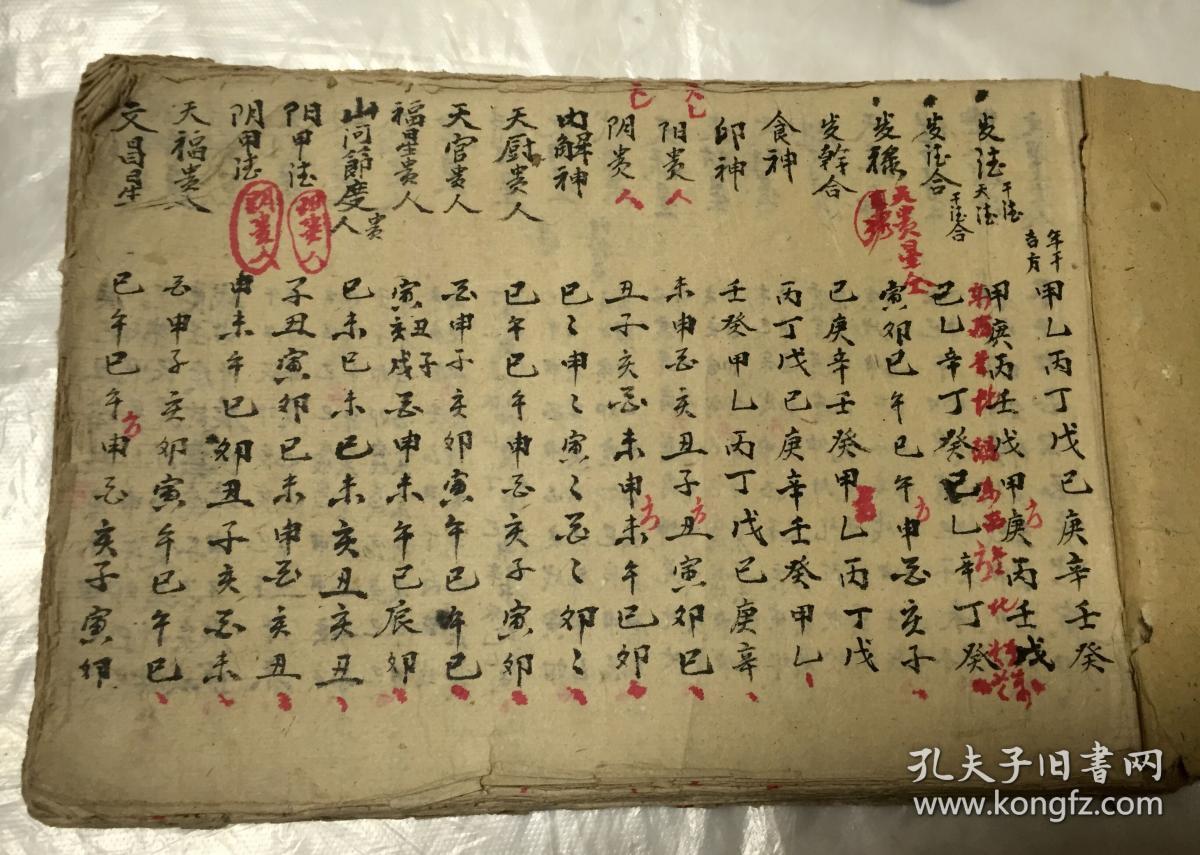 年干吉方 甲乙丙丁戊己庚辛壬癸
岁德 天德 干德 甲庚丙壬戊甲庚丙壬戊
岁德合 干德合 己乙辛丁癸己乙辛丁癸
岁禄 寅卯巳午巳午申酉亥子
天贵星全
岁幹合 己庚辛壬癸甲乙丙丁戊
食神 丙丁戊己庚辛壬癸甲乙
印神 壬癸甲乙丙丁戊己庚辛
阳贵人 未申酉亥丑子丑寅卯巳
阴贵人 丑子亥酉未申未午巳卯
内解神 巳〻申〻寅〻酉〻卯〻
天厨贵人 巳午巳午申酉亥子寅卯
天官贵人 酉申子亥卯寅午巳午巳
福星贵人 寅亥丑戌子酉申未午巳辰卯
山河節度贵人 巳未巳未巳未亥丑亥丑
阳甲法 子丑寅卯巳未申酉亥丑
阳贵人
阴甲法 申未午巳卯丑子亥酉未
阴贵人
天福贵人 酉申子亥卯寅午巳午巳
文昌星 巳午巳午申酉亥子寅卯
方
方
方
方
方
孔夫子旧書网
www.kongfz.com